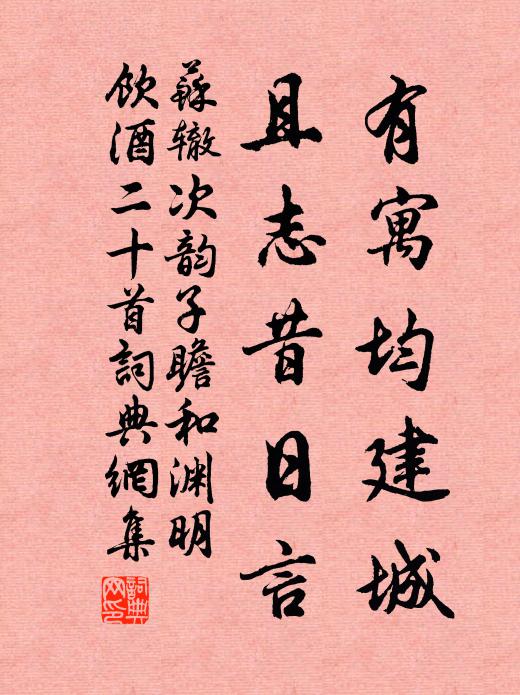 有寓均建城
且志昔日言
蘇辙次韵子瞻和渊明
飲酒二十首詞典網集
詞典
网印